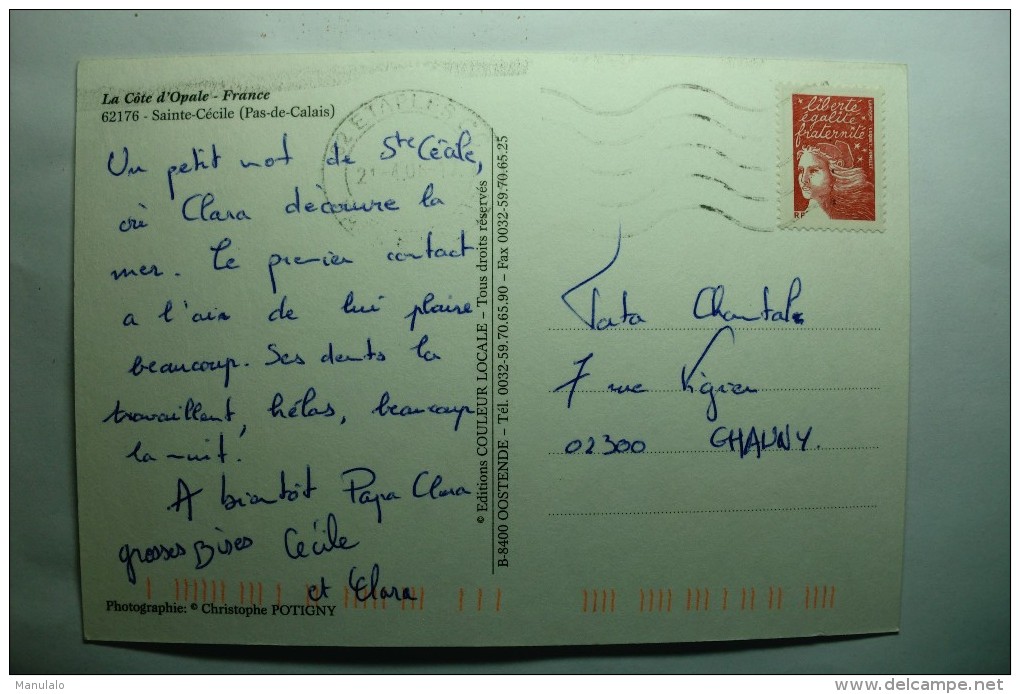 La Côte d'Opale - France
62176 - Sainte-Cécile (Pas-de-Calais)
Un petit mot de Ste Cécile,
où Clara découvre la
mer. Le premier contact
a l'air de lui plaire
beaucoup. Ses dents la
travaillent, hélas, beaucoup
la nuit.
A bientôt Papa Clara
grosses Bises Cécile
et Clara
Photographie: © Christophe POTIGNY
© Editions COULEUR LOCALE – Tous droits réservés
B-8400 OOSTENDE – Tél. 0032-59.70.65.90 – Fax 0032-59.70.65.25
62 ETAPLES
liberté
égalité
fraternité
RF
Tata Chantal
7 rue Vigier
02300 CHAUNY.
Manulalo
www.delcampe.net